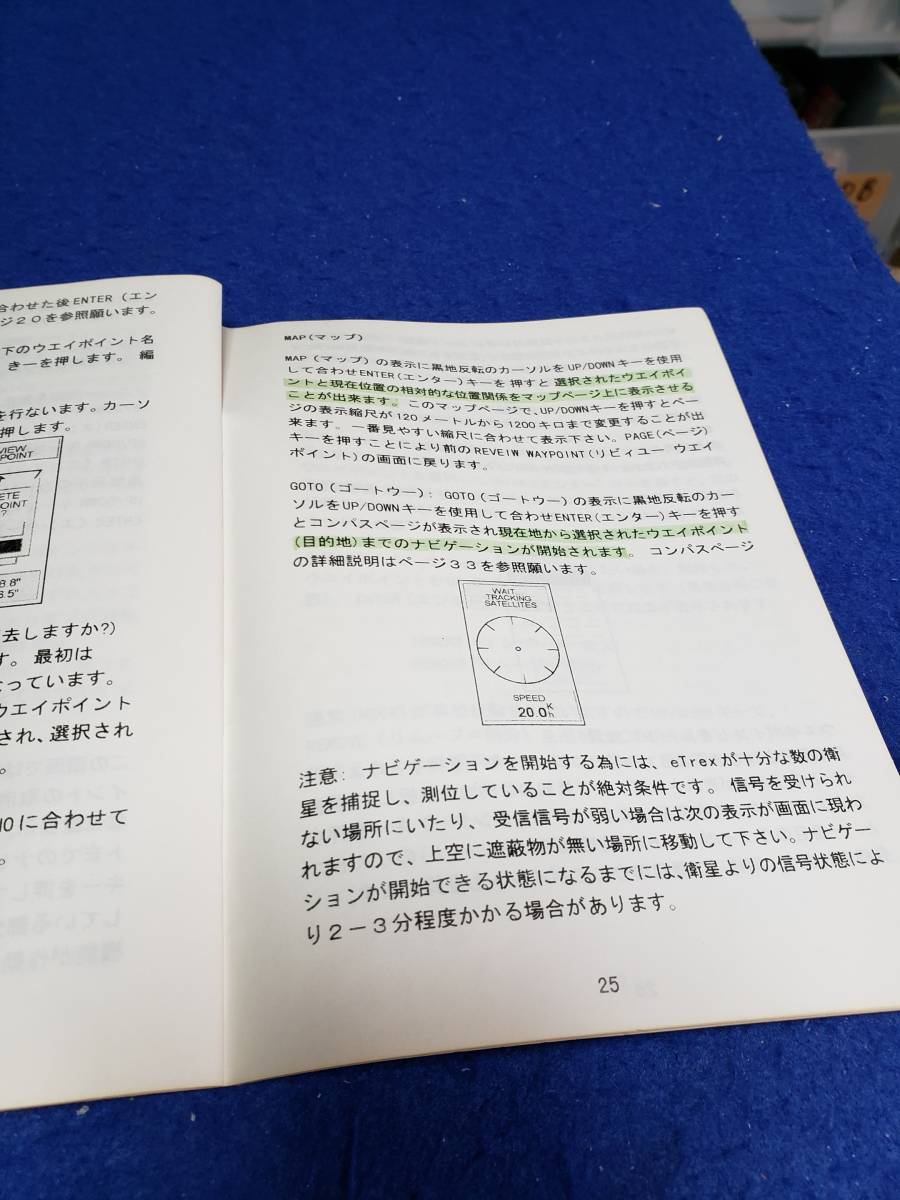 合わせた後ENTER（エン
ジ２０を参照願います。
下のウエイポイント名
きーを押します。 編
を行ないます。カーソ
押します。
VIEW
POINT
ETE
POINT
?
8.8"
3.5"
去しますか?)
す。 最初は
なっています。
ウエイポイント
され、選択され
。
NOに合わせて
。
MAP(マップ)
MAP (マップ) の表示に黒地反転のカーソルをUP/DOWNキーを使用
して合わせENTER(エンター)キーを 押すと 選択されたウエイポイ
ントと現在位置の相対的な位置関係をマップページ上に表示させる
ことが出来ます。 このマップページで、UP/DOWNキーを押すとペー
ジの表示縮尺が120メートルから1200キロまで変更することが出
来ます。 一番見やすい縮尺に合わせて表示下さい。PAGE(ページ)
キーを押すことにより前のREVEIW WAYPOINT(リビィユー ウエイ
ポイント)の画面に戻ります。
GOTO(ゴートウー): GOTO(ゴートウー)の表示に黒地反転のカー
ソルをUP/DOWNキーを使用して合わせENTER(エンター)キーを押す
とコンパスページが表示され現在地から選択されたウエイポイント
(目的地)までのナビゲーションが開始されます。 コンパスページ
の詳細説明はページ３３を参照願います。
WAIT..
TRACKING
SATELLITES
SPEED
20.0 K/h
注意: ナビゲーションを開始する為には、eTrexが十分な数の衛
星を捕捉し、測位していることが絶対条件です。 信号を受けられ
ない場所にいたり、 受信信号が弱い場合は次の表示が画面に現わ
れますので、上空に遮蔽物が無い場所に移動して下さい。ナビゲー
ションが開始できる状態になるまでには、衛星よりの信号状態によ
り２－３分程度かかる場合があります。
25